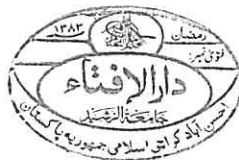 ۱۳۸۳
رمضان
فتویٰ نمبر:
دارالإفتاء
جامعۃ الرشید
احسن آباد کراچی اسلامی جمہوریہ پاکستان